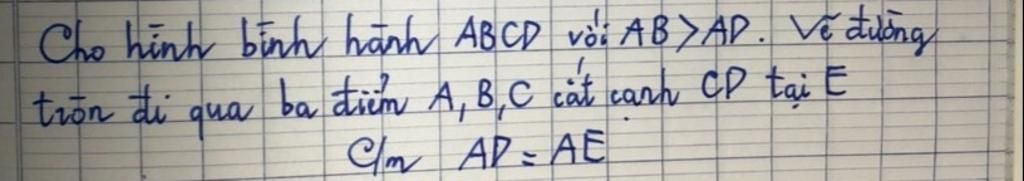 Cho hình bình hành ABCD với AB > AD. Vẽ đường
tròn đi qua ba điểm A, B, C cắt cạnh CD tại E
C/m AD = AE